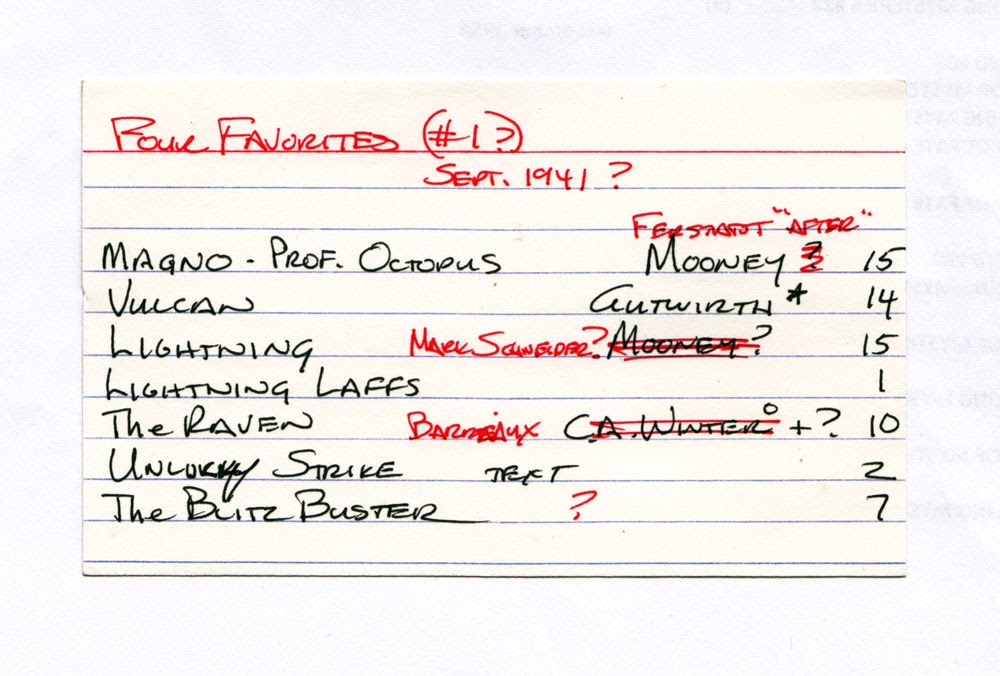 FOUR FAVORITES (#1?)
SEPT. 1941 ?
FERSTADT "AFTER"
MAGNO - PROF. OCTOPUS MOONEY ? 15
VULCAN GUTWIRTH * 14
LIGHTNING MARK SCHNEIDER? MOONEY? 15
LIGHTNING LAFFS 1
The RAVEN BARREAUX C.A. WINTER + ? 10
UNLUCKY STRIKE TEXT 2
The BLITZ BUSTER ? 7